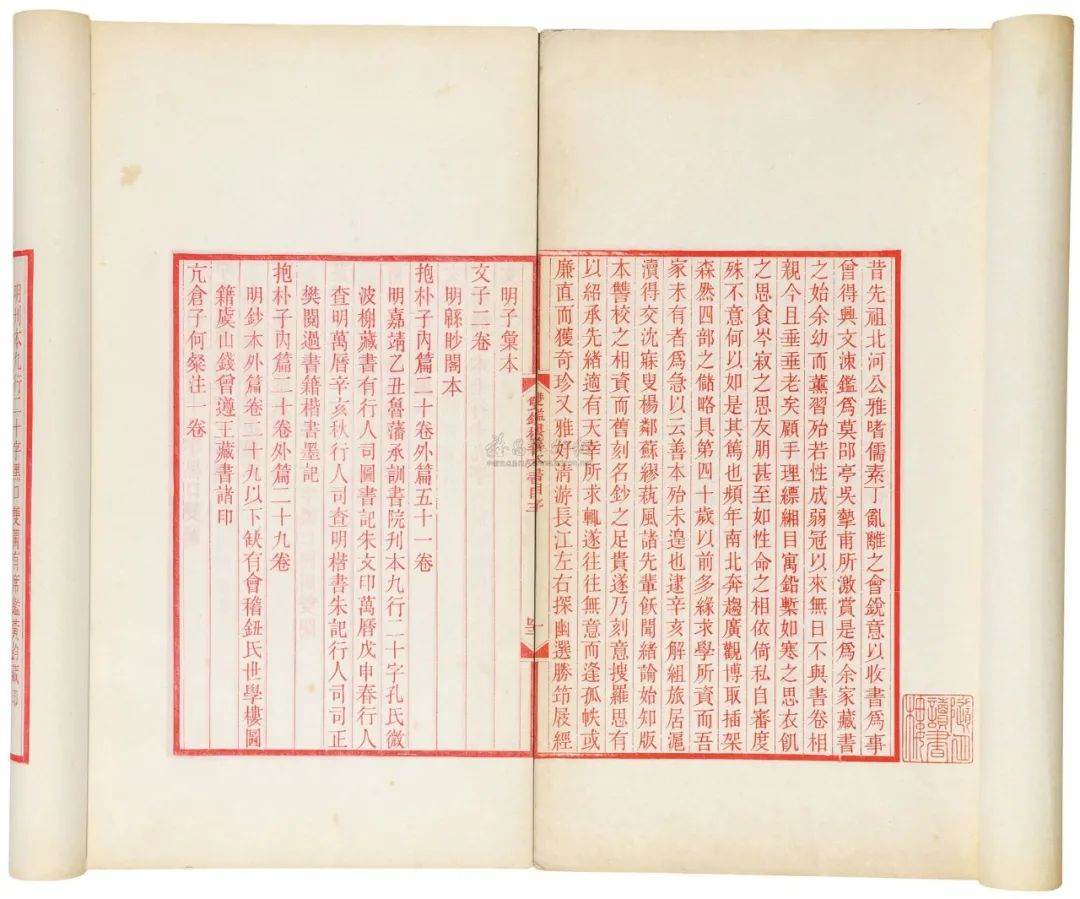 昔先祖北河公雅嗜儒素丁亂離之會銳意以收書為事
曾得興文涑鑑為莫邵亭吳摯甫所激賞是為余家藏書
之始余幼而薰習殆若性成弱冠以來無日不與書卷相
親今且垂垂老矣顧手理縹緗目寓鉛槧如寒之思衣飢
之思食岑寂之思友朋甚至如性命之相依倚私自審度
殊不意何以如是其篤也頻年南北奔趨廣觀博取插架
森然四部之儲略具第四十歲以前多緣求學所資而吾
家未有者為急以云善本殆未遑也逮辛亥解組旅居滬
瀆得交沈寐叟楊鄰蘇繆蓺風諸先輩飫聞緒論始知版
本讐校之相資而舊刻名鈔之足貴遂乃刻意搜羅思有
以紹承先緒適有天幸所求輒遂往往無意而逢孤帙或
廉直而獲奇珍又雅好清游長江左右探幽選勝笻屐經
雙鑑樓善本書目序
一
明子彙本
文子二卷
明緜眇閣本
抱朴子內篇二十卷外篇五十一卷
明嘉靖乙丑魯藩承訓書院刊本九行二十字孔氏微
波榭藏書有行人司圖書記朱文印萬曆戊申春行人
查明萬曆辛亥秋行人司查明楷書朱記行人司司正
樊閱過書籍楷書墨記
抱朴子內篇二十卷外篇二十九卷
明鈔本外篇卷三十九以下缺有會稽鈕氏世學樓圖
籍虞山錢曾遵王藏書諸印
亢倉子何粲注一卷
明刊本九行二十字黑口雙闌有席鑑黃鈞藏印